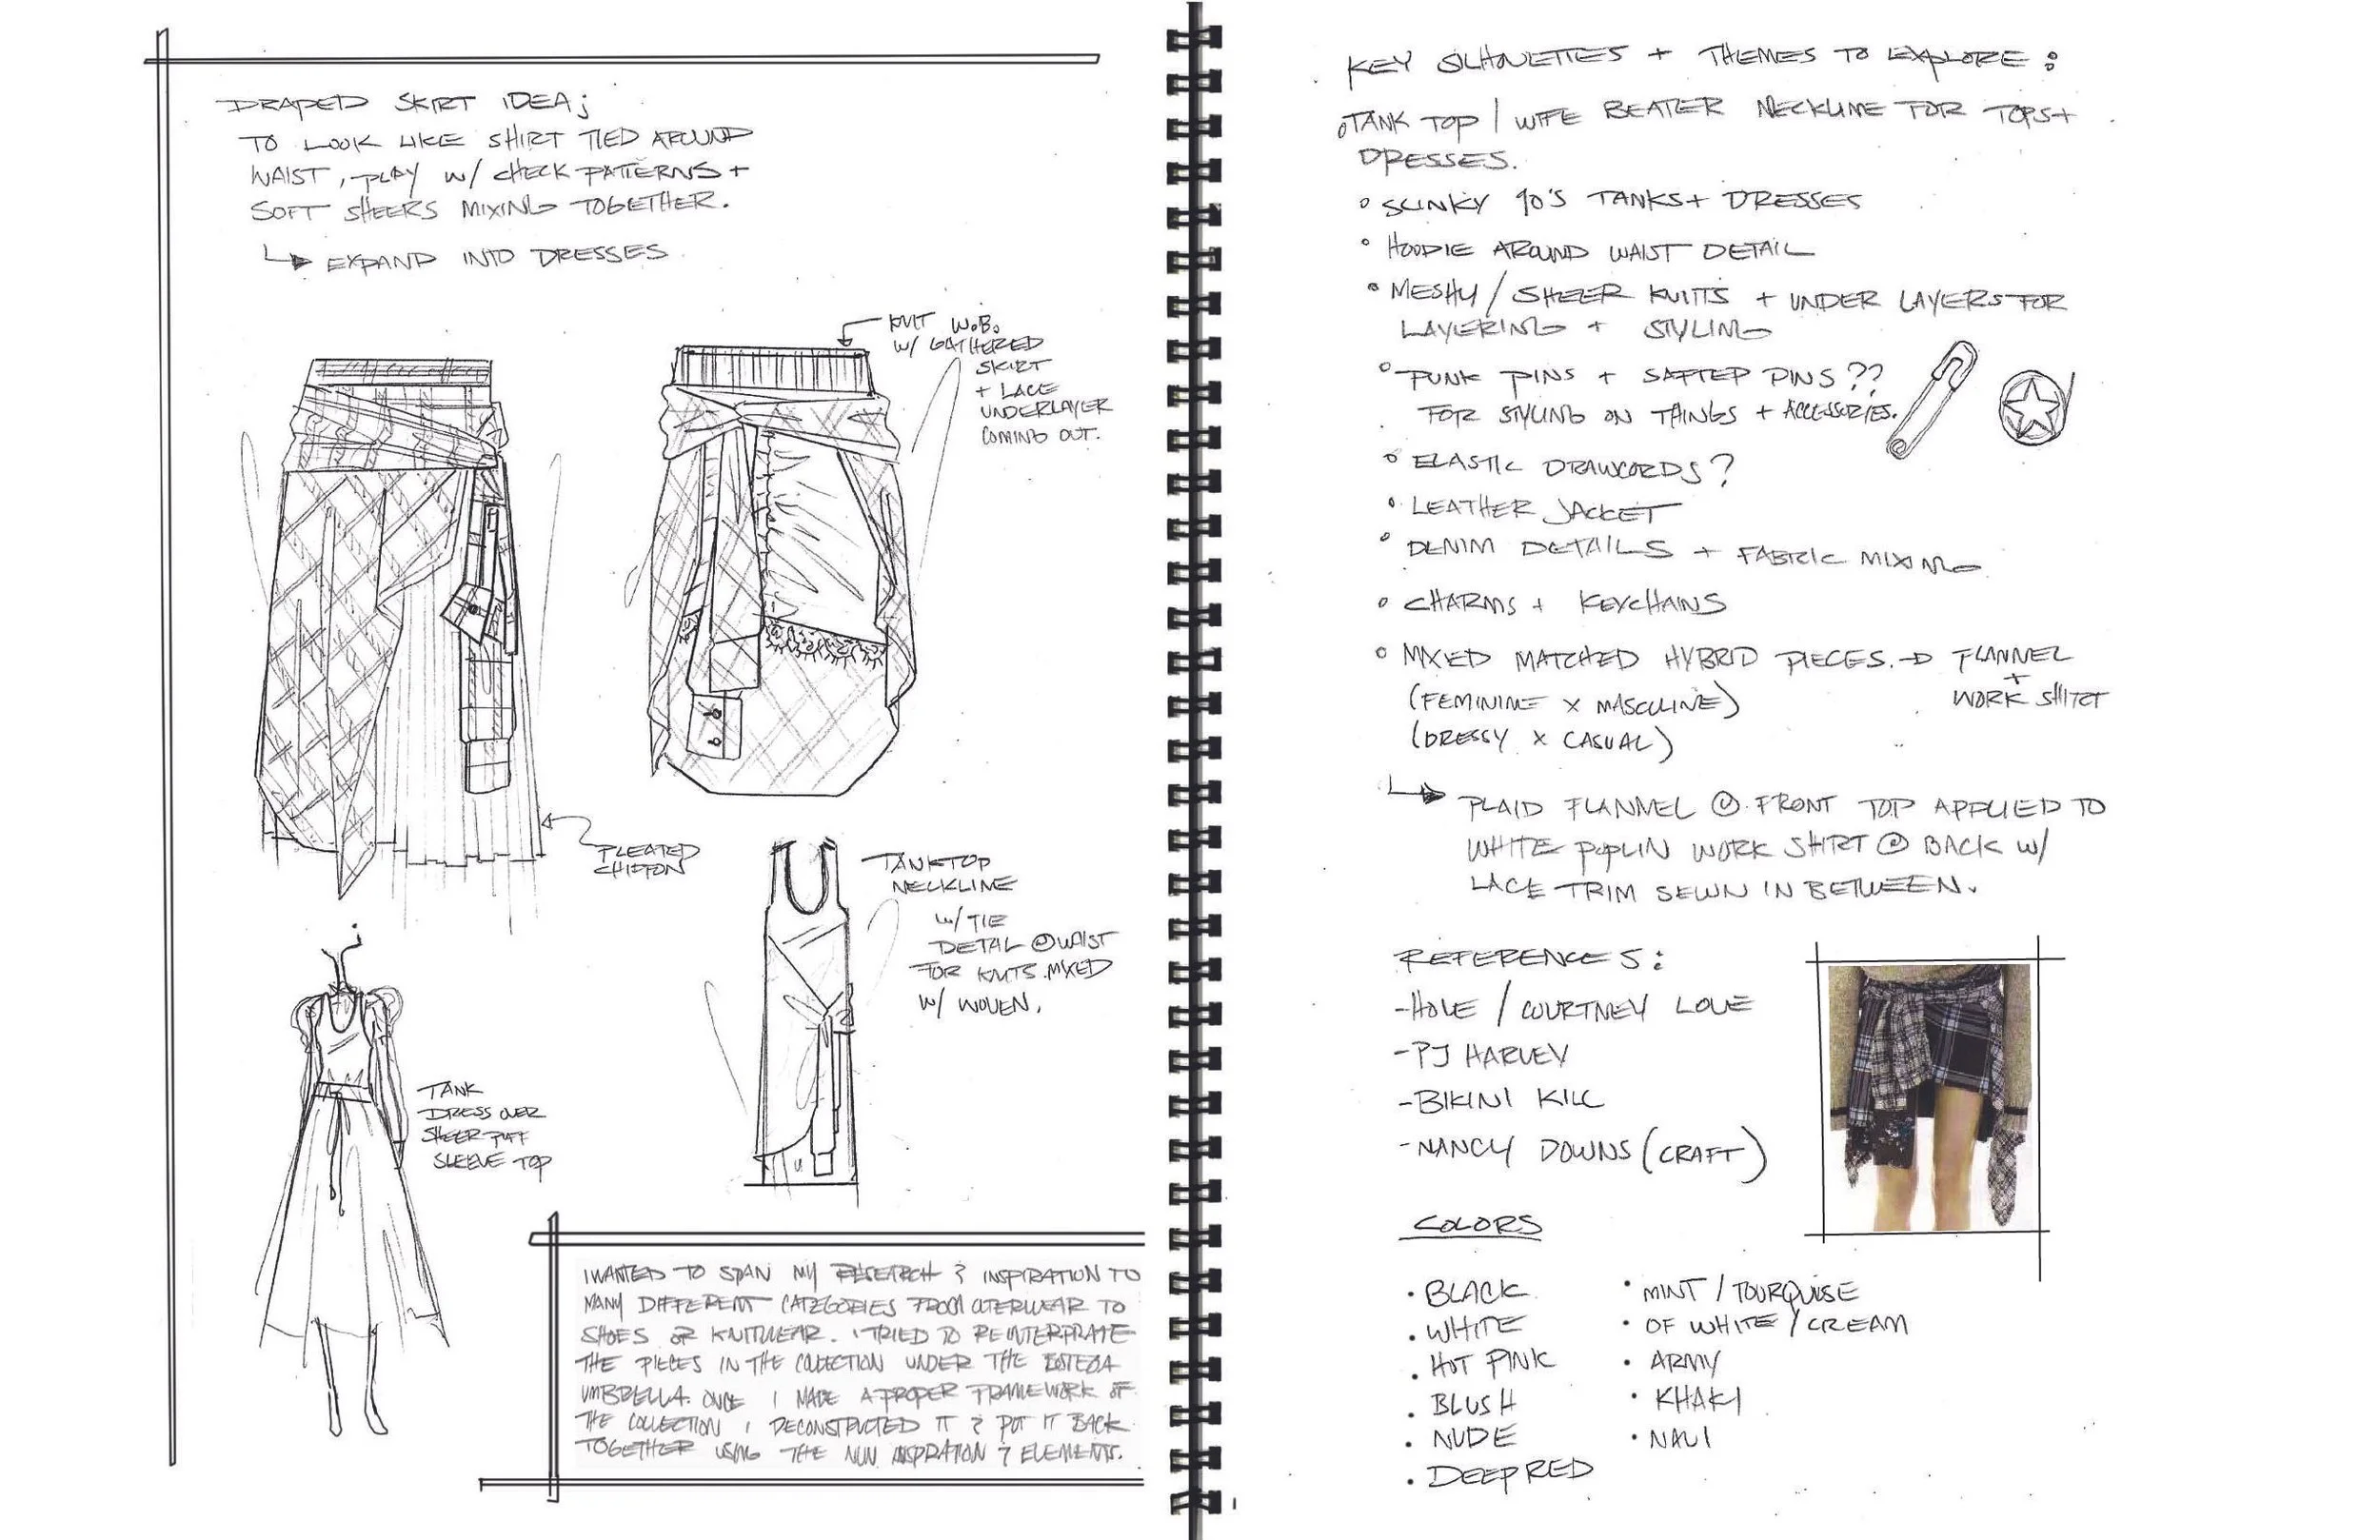 DRAPED SKIRT IDEA;
TO LOOK LIKE SHIRT TIED AROUND
WAIST, PLAY W/ CHECK PATTERNS +
SOFT SHEERS MIXING TOGETHER.
EXPAND INTO DRESSES
KNIT W.B.
W/ GATHERED
SKIRT
+ LACE
UNDERLAYER
COMING OUT.
PLEATED
CHIFFON
TANKTOP
NECKLINE
W/ TIE
DETAL @ WAIST
FOR KNITS MIXED
W/ WOVEN.
TANK
DRESS OVER
SHEER PUFF
SLEEVE TOP
I WANTED TO SPAN MY RESEARCH & INSPIRATION TO
MANY DIFFERENT CATEGORIES FROM OTERWEAR TO
SHOES OR KNITWEAR. I TRIED TO REINTERPRATE
THE PIECES IN THE COLLECTION UNDER THE
UMBRELLA. ONCE I MADE A PROPER FRAMEWORK OF
THE COLLECTION I DECONSTRUCTED IT & PUT IT BACK
TOGETHER USING THE NUN INSPRATION & ELEMENTS.
KEY SILHOUETTES + THEMES TO EXPLORE:
TANK TOP / WIFE BEATER NECKLINE FOR TOPS +
DRESSES.
SLINKY 90'S TANKS + DRESSES
HOODIE AROUND WAIST DETAIL
MESHY / SHEER KNITS + UNDER LAYERS FOR
LAYERING + STYLING
PUNK PINS + SAFTEP PINS??
FOR STYLING ON THINGS + ACCESSORIES.
ELASTIC DRAWCORDS?
LEATHER JACKET
DENIM DETAILS + FABRIC MIXING
CHARMS + KEYCHAINS
MIXED MATCHED HYBRID PIECES. → FLANNEL
+
(FEMININE X MASCULINE) WORK SHIRT
(DRESSY X CASUAL)
PLAID FLANNEL @ FRONT TOP APPLIED TO
WHITE POPLIN WORK SHIRT @ BACK W/
LACE TRIM SEWN IN BETWEEN.
REFERENCES:
-HOLE / COURTNEY LOVE
-PJ HARVEY
-BIKINI KILL
-NANCY DOWNS (CRAFT)
COLORS
• BLACK
• WHITE
• HOT PINK
• BLUSH
• NUDE
• DEEP RED
• MINT / TOURQUISE
• OF WHITE / CREAM
• ARMY
• KHAKI
• NAVI